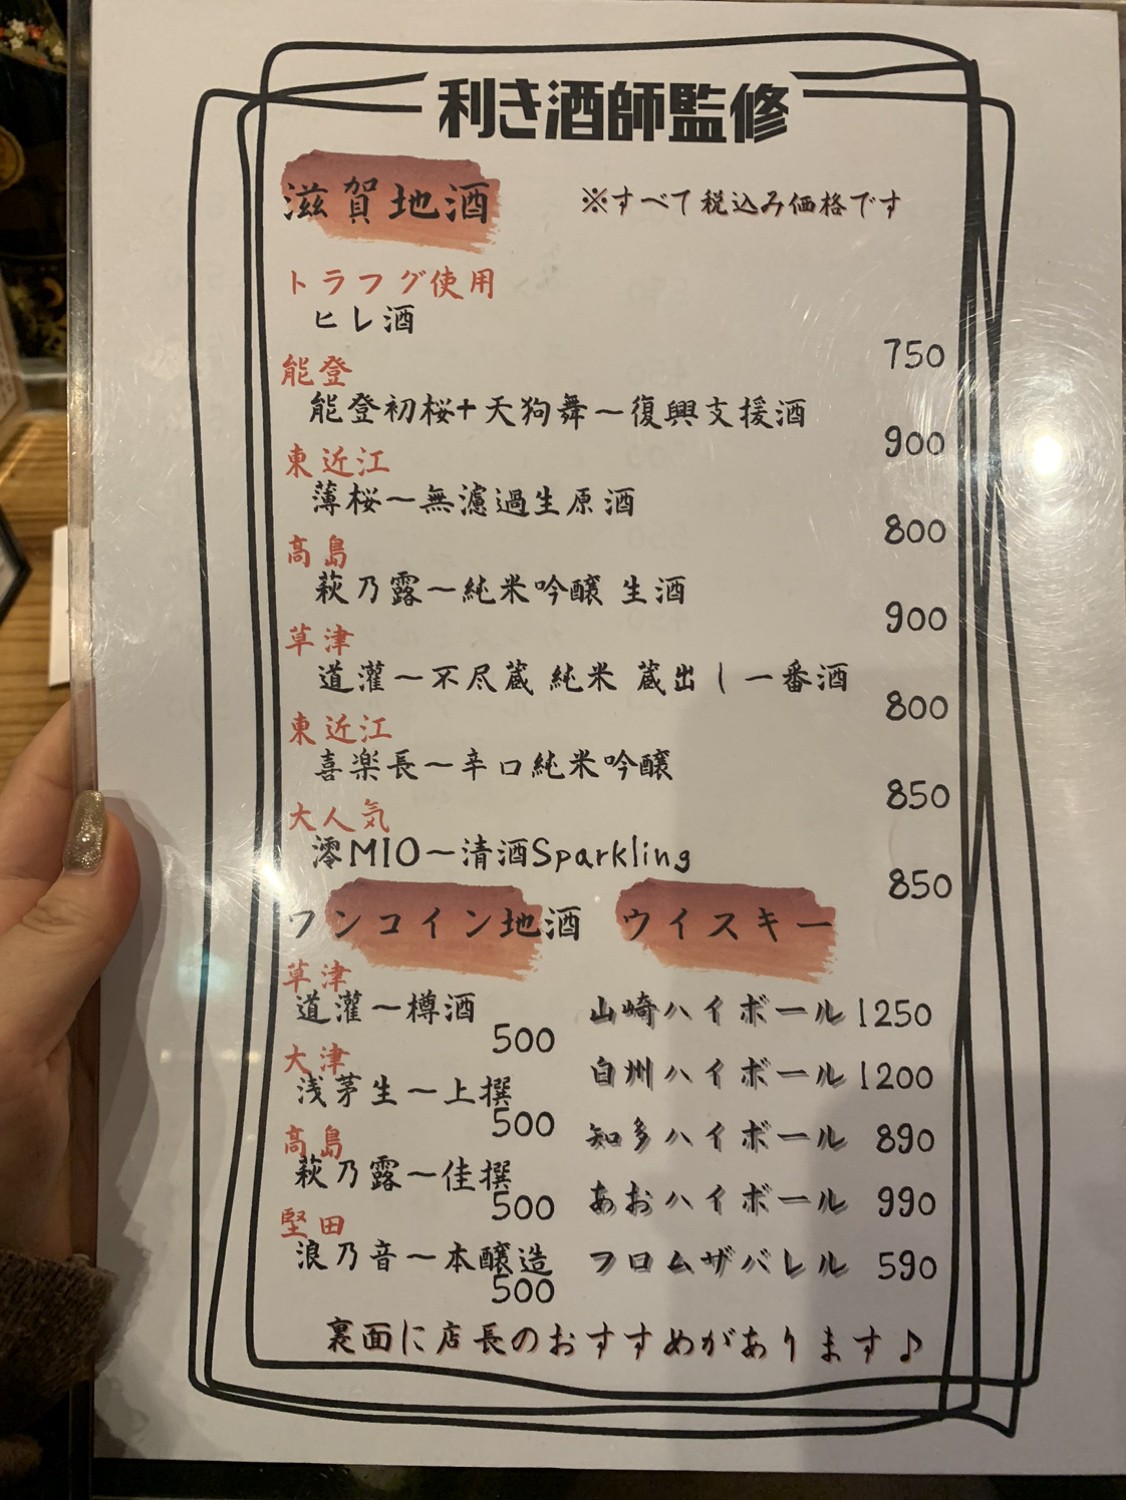 利き酒師監修
滋賀地酒 ※すべて税込み価格です
トラフグ使用
ヒレ酒
750
能登
能登初桜+天狗舞~復興支援酒
900
東近江
薄桜~無濾過生原酒
800
高島
萩乃露~純米吟醸 生酒
900
草津
道灌~不尽蔵 純米 蔵出し一番酒
800
東近江
喜楽長~辛口純米吟醸
850
大人気
澪MIO~清酒Sparkling
850
ワンコイン地酒
草津
道灌~樽酒
500
大津
浅茅生~上撰
500
高島
萩乃露~佳撰
500
堅田
浪乃音~本醸造
500
ウイスキー
山崎ハイボール 1250
白州ハイボール 1200
知多ハイボール 890
あおハイボール 990
フロムザバレル 590
裏面に店長のおすすめがあります♪